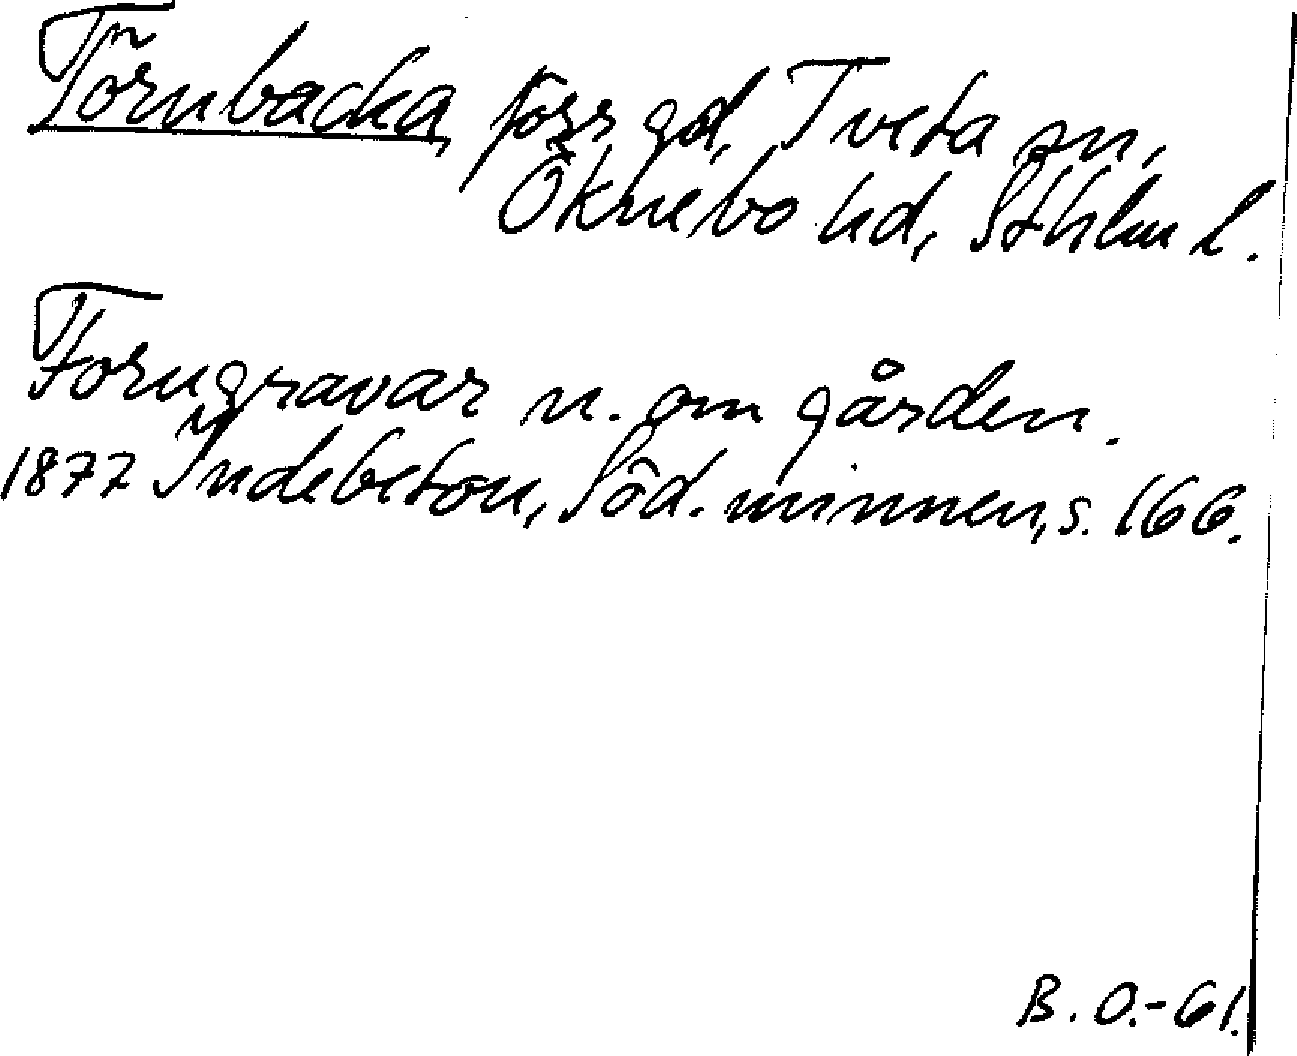 Törnbacka, förr gd, Tveta sn,
Öknebo hd, Sthlm l.
Forngravar n. om gården.
1877 Indebetou, Söd. minnen, s. 166.
B. O.-61.